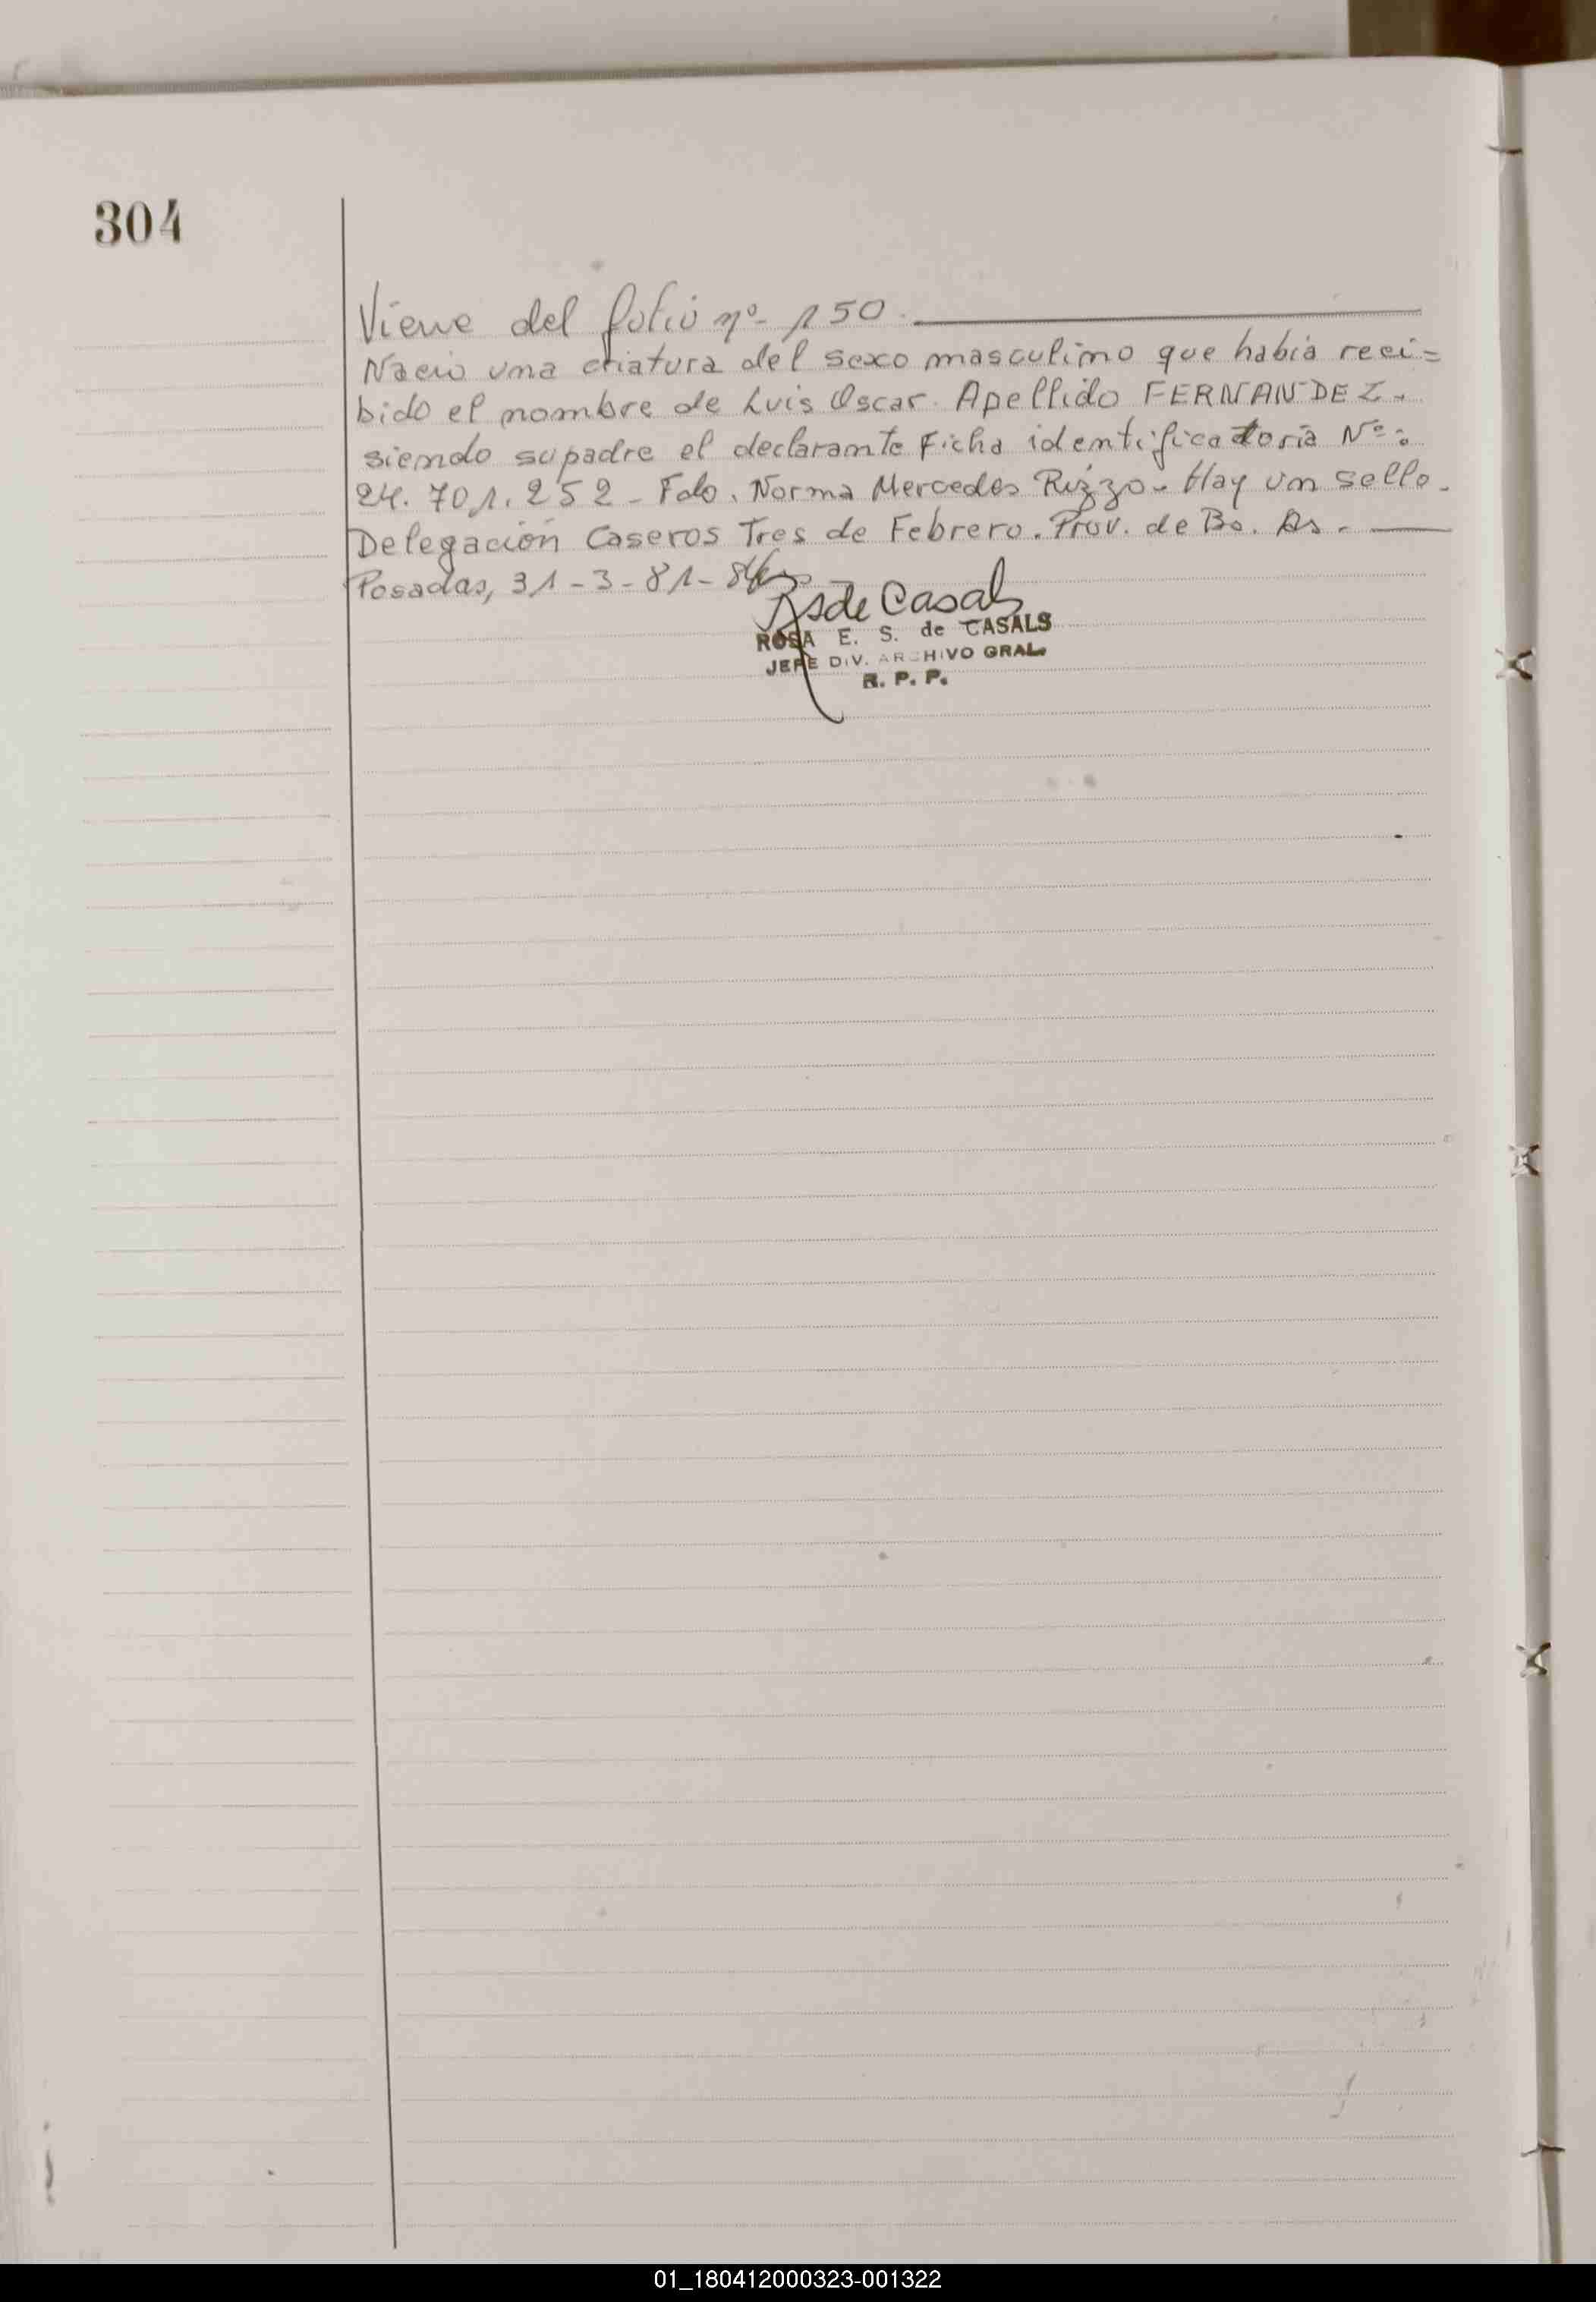 304
Viene del folio nº- 150.
Nacio una criatura del sexo masculino que había reci=
bido el nombre de Luis Oscar. Apellido FERNANDEZ.
siendo su padre el declarante Ficha identificatoria Nº:
24.701.252 - Fdo. Norma Mercedes Rizzo - Hay un sello.
Delegación Caseros Tres de Febrero. Prov. de Bs. As.
Posadas, 31-3-81-
RSde Casals
ROSA E. S. de CASALS
JEFE DIV. ARCHIVO GRAL.
R. P. P.
01_180412000323-001322